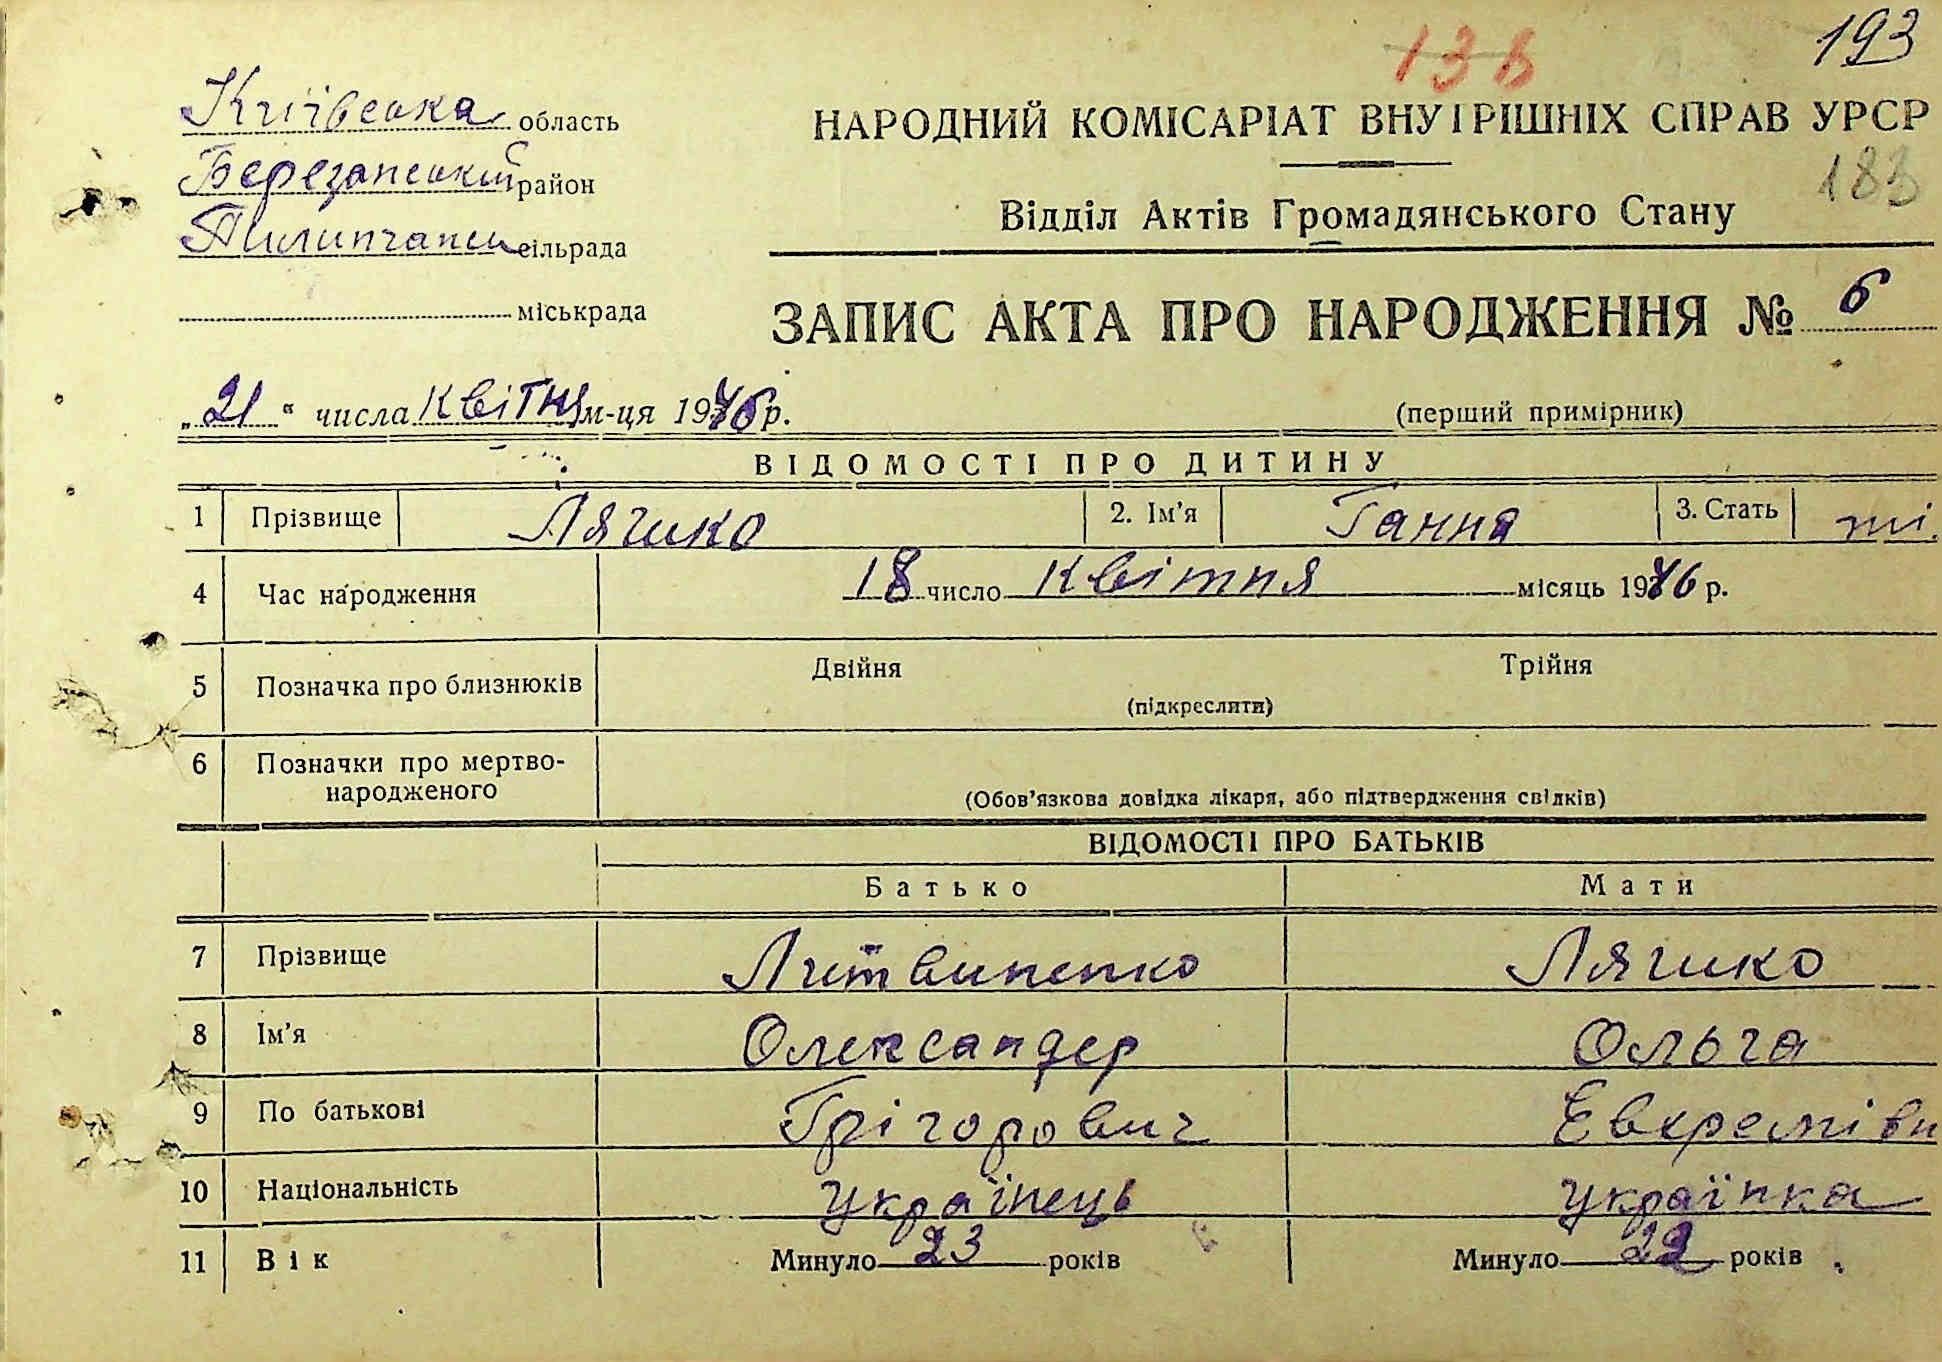 13 в
193
Київська область
НАРОДНИЙ КОМІСАРІАТ ВНУТРІШНІХ СПРАВ УРСР
Березанський район
183
Відділ Актів Громадянського Стану
Пилипчанск сільрада
міськрада
ЗАПИС АКТА ПРО НАРОДЖЕННЯ № 6
„21“ числа квітня м-ця 1946 р.
(перший примірник)
ВІДОМОСТІ ПРО ДИТИНУ
1 Прізвище Ляшко 2. Ім’я Ганна 3. Стать жі.
4 Час народження 18 число квітня місяць 1946 р.
5 Позначка про близнюків Двійня Трійня
(підкреслити)
6 Позначки про мертво-
народженого
(Обов’язкова довідка лікаря, або підтвердження свідків)
ВІДОМОСТІ ПРО БАТЬКІВ
Батько Мати
7 Прізвище Литвиненко Ляшко
8 Ім’я Олександер Ольга
9 По батькові Грігорович Евкремівн
10 Національність українець українка
11 Вік Минуло 23 років Минуло 22 років